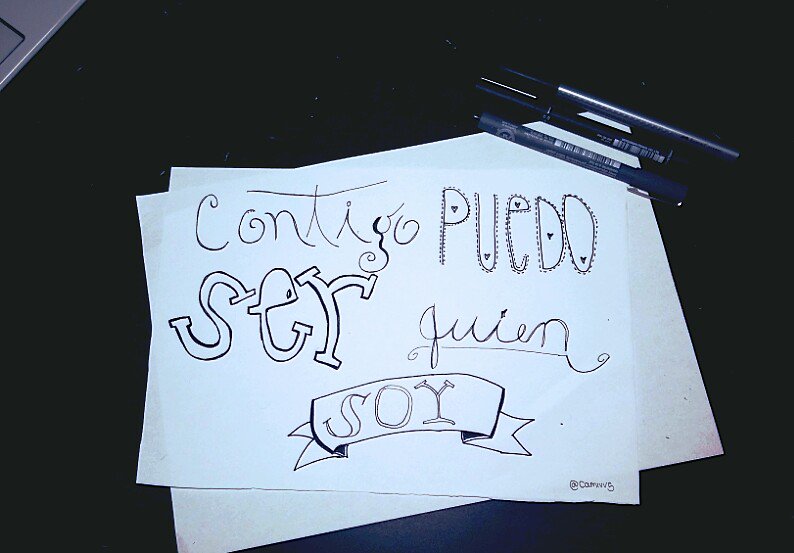 Contigo PUeDO
ser quien
SOY
@camivvs